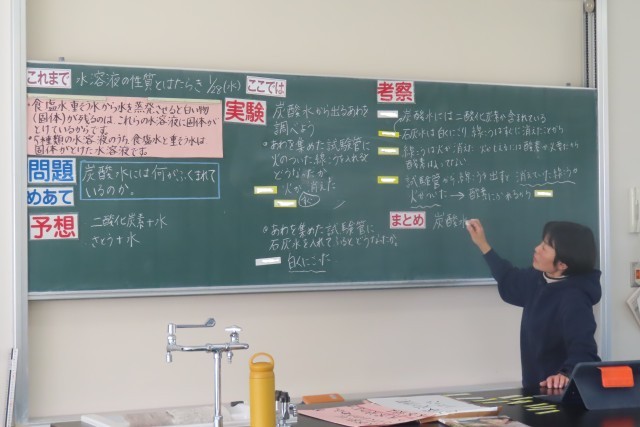 これまで 水溶液の性質とはたらき 1/28(水)
・食塩水、重そう水から水を蒸発させると白い物
(固体)が残るのは、これらの水溶液に固体が
とけているからです。
・5種類の水溶液のうち、食塩水と重そう水は
固体がとけた水溶液です。
問題 炭酸水には何がふくまれて
いるのか。
めあて
予想 二酸化炭素+水
さとう+水
ここでは
実験 炭酸水から出るあわを
調べよう
あわを集めた試験管に
火のついた線こうを入れると
どうなったか
火が消えた
あわを集めた試験管に
石灰水を入れてふるとどうなったか
白くにごった
考察
炭酸水には二酸化炭素が含まれている
石灰水は白くにごり、線こうは
線こうは火が消え
酸素は入ってない
試験管から線こうを出すと消えていた線こうの
火がついた→酸素にふれるから
まとめ 炭酸水